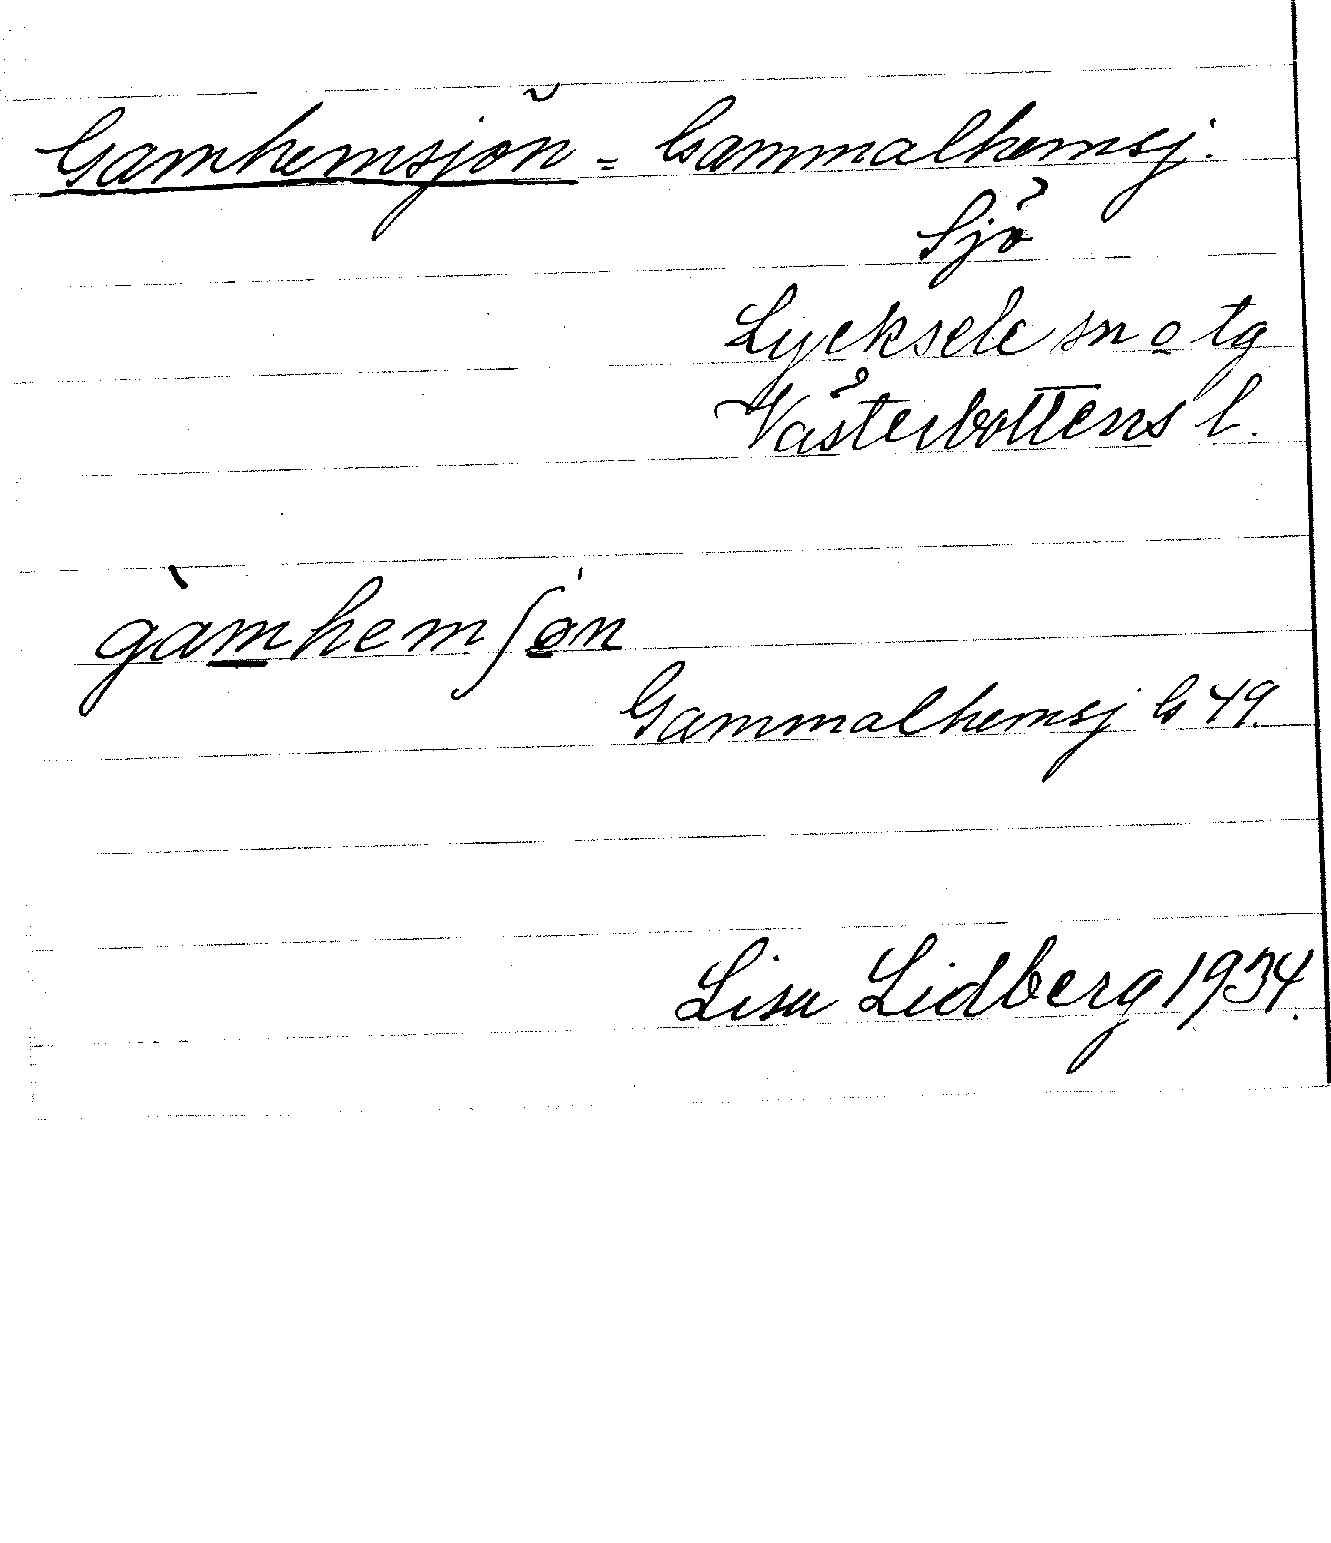 Gamhemsjön = Gammalhemsj.
Sjö
Lycksele sn o tg
Västerbottens l.
gàmhemʃøn
Gammalhemsj G 49.
Lisa Lidberg 1934.